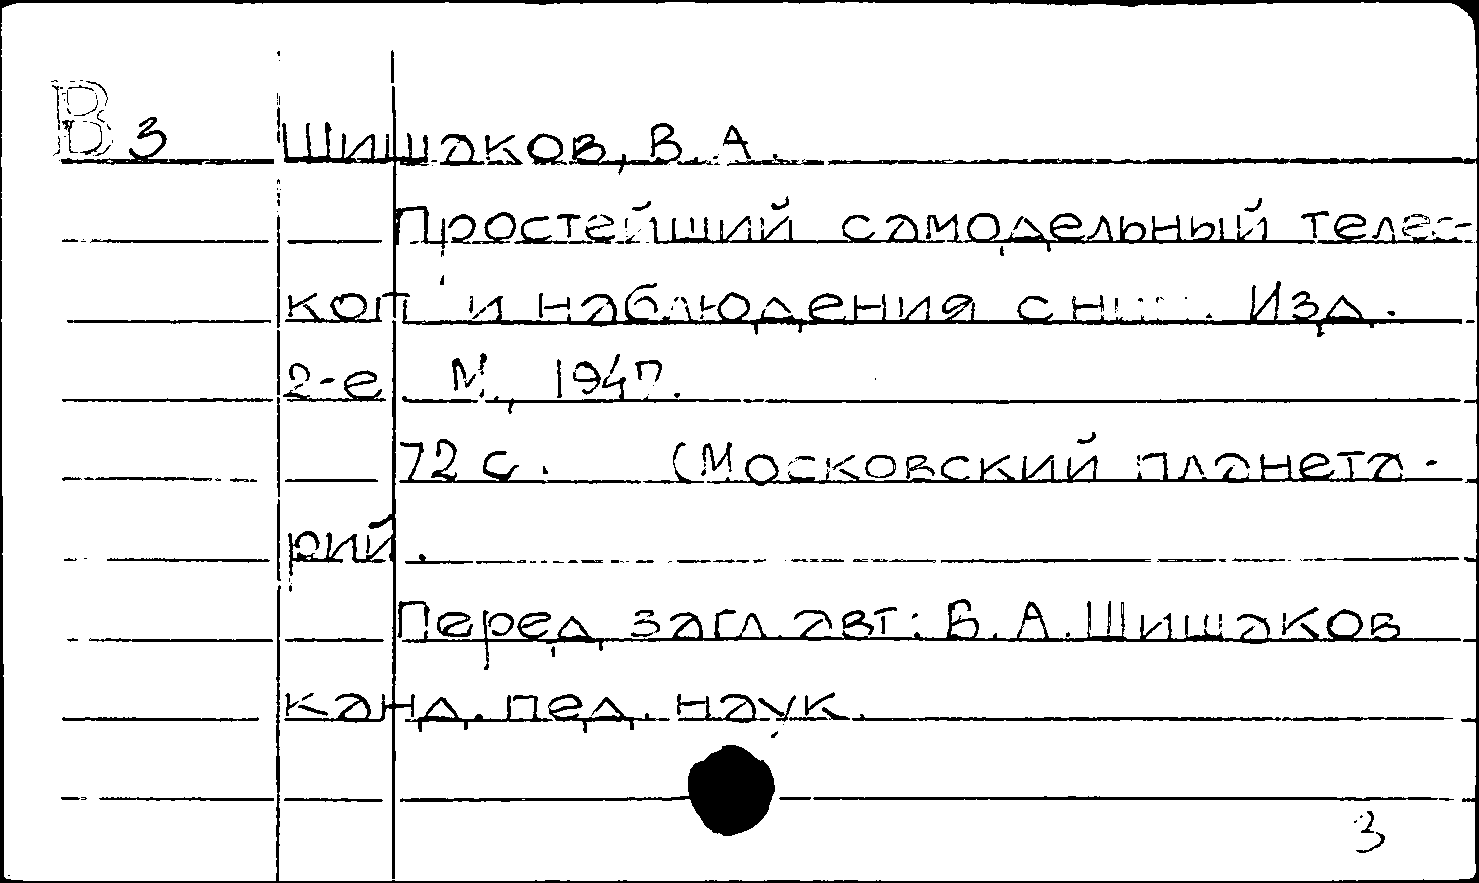 В 3 Шишаков, В. А.
Простейший самодельный телес-
коп и наблюдения с ним. Изд.
2-е М., 1947.
72 с. (Московский планета-
рий.
Перед загл. авт.: В. А. Шишаков
канд. пед. наук.
3